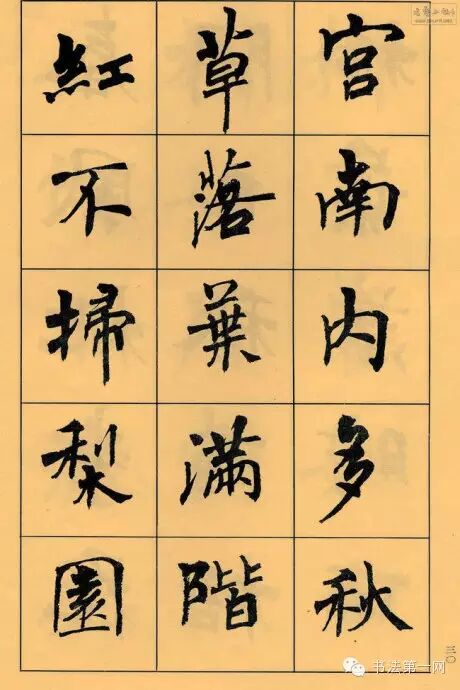 宫南内多秋
草落葉滿階
紅不掃梨園
三〇
书法第一网